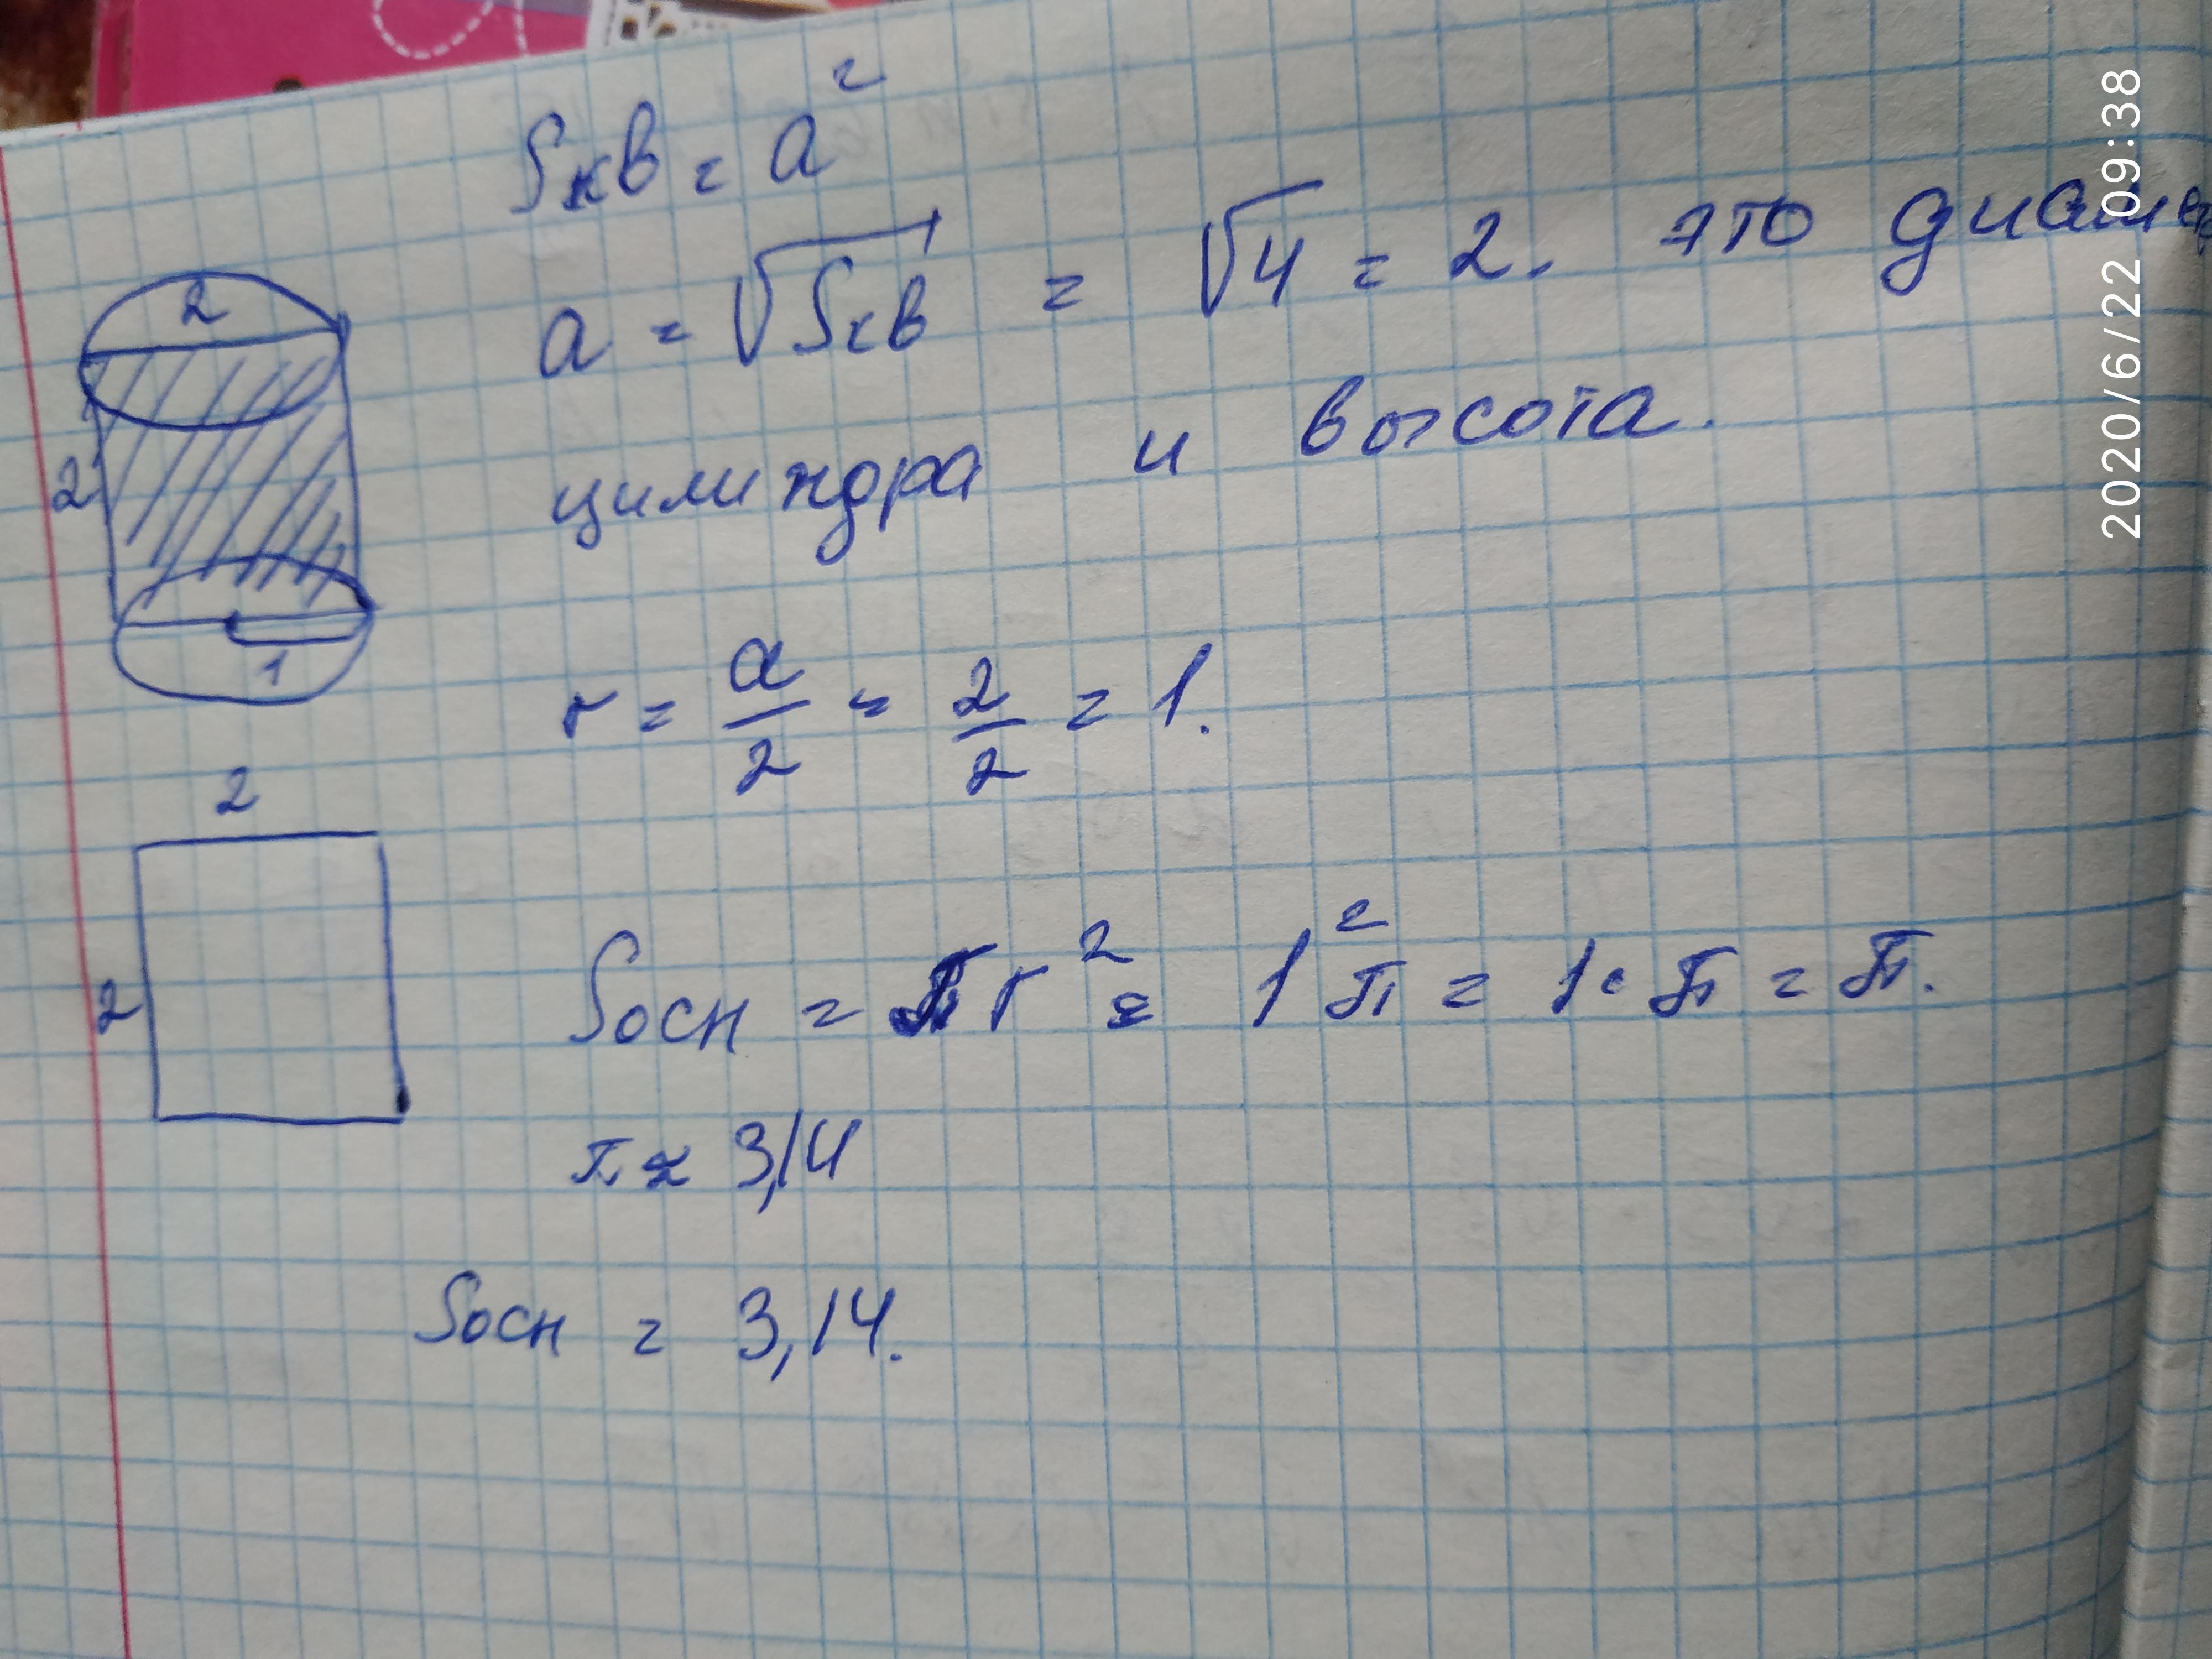 Sкв = a²
a = √Sкв = √4 = 2. это
цилиндра и высота.
2
2
1
r = a/2 = 2/2 = 1.
2
2
Sосн = πr² = 1²π = 1·π = π.
π ≈ 3,14
Sосн = 3,14.
2020/6/22 09:38